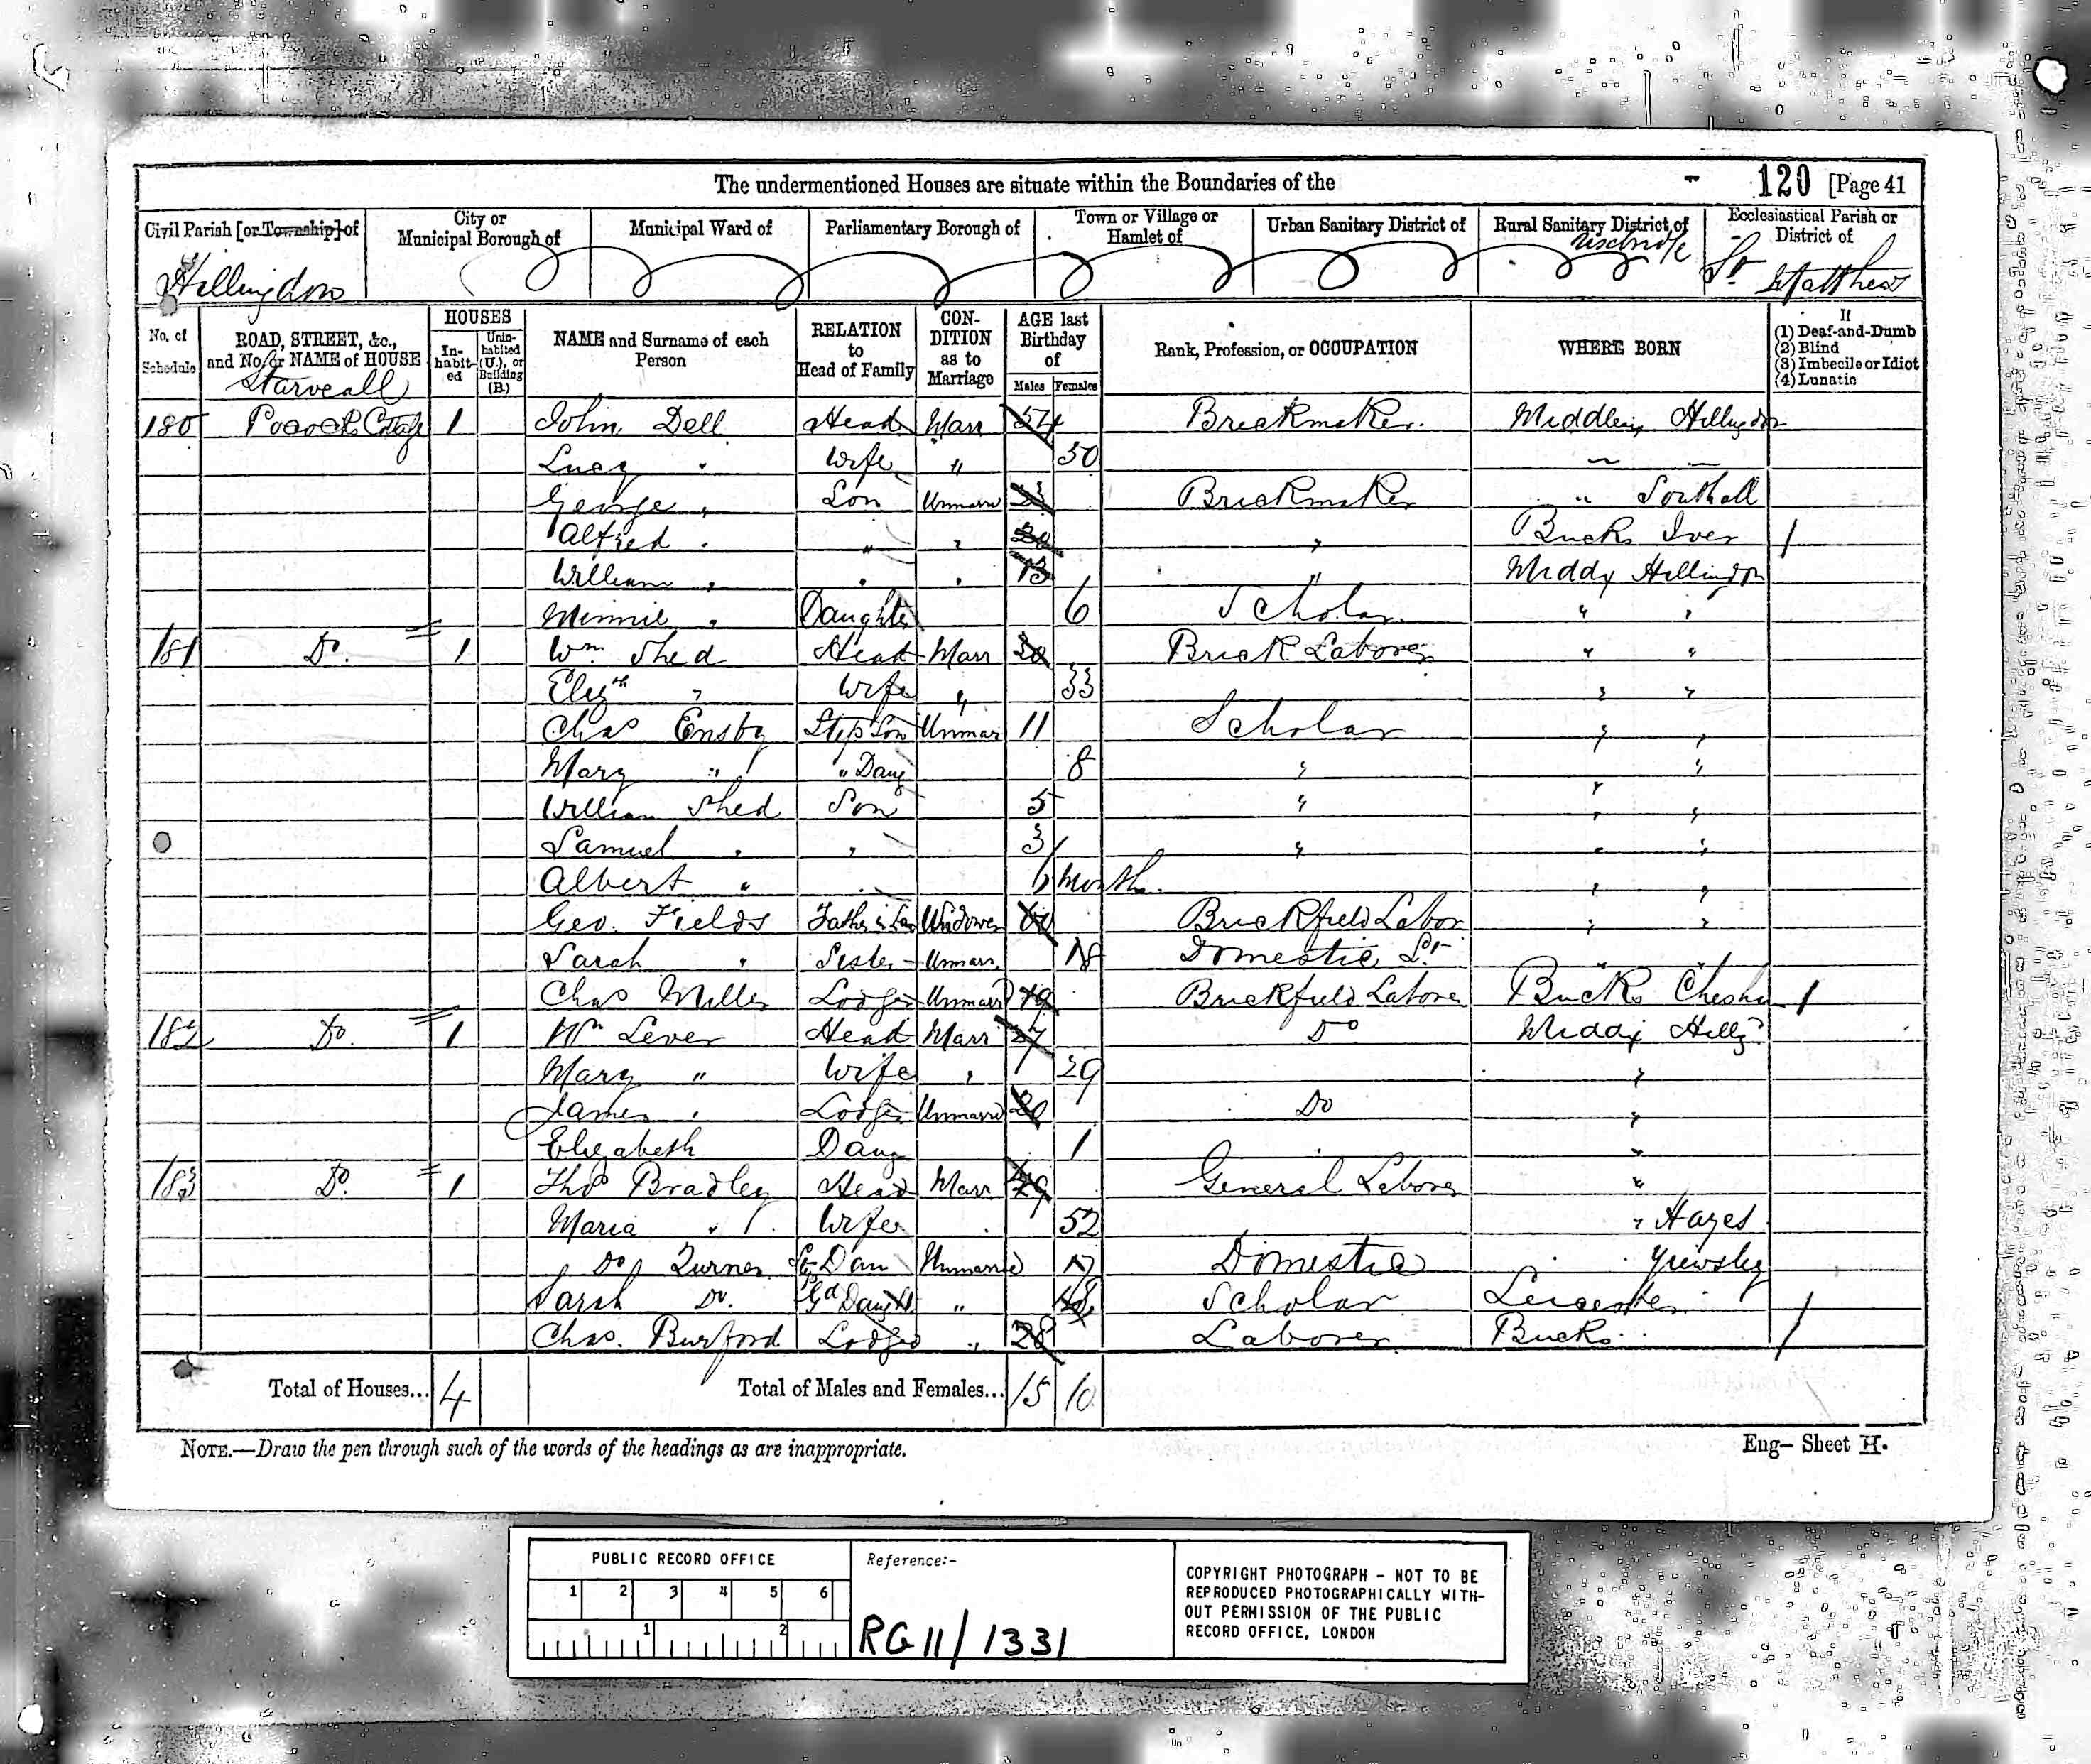 The undermentioned Houses are situate within the Boundaries of the 120 [Page 41
Civil Parish [or Township] of
City or Municipal Borough of
Municipal Ward of
Parliamentary Borough of
Town or Village or Hamlet of
Urban Sanitary District of
Rural Sanitary District of
Ecclesiastical Parish or District of
Hillingdon
Uxbridge
St Matthews
No. of Schedule
ROAD, STREET, &c., and No. or NAME of HOUSE
HOUSES
In-habit-ed
Unin-habited (U.), or Building (B.)
NAME and Surname of each Person
RELATION to Head of Family
CON-DITION as to Marriage
AGE last Birthday of
Males Females
Rank, Profession, or OCCUPATION
WHERE BORN
If
(1) Deaf-and-Dumb
(2) Blind
(3) Imbecile or Idiot
(4) Lunatic
Starveall
180 1 John Dell Head Marr 54 Brickmaker Hillingdon
Lucy " Wife " 50
George " Son Unmarr 23 Brickmaker " Southall
Alfred " " " Bucks Iver
William " " " "
Minnie " Daughter 6 Scholar " "
181 Do. 1 Wm Shed Head Marr Brick Laborer " "
Elizth " Wife " 33 " "
Chas Ensby Step Son Unmar 11 Scholar " "
Mary " " Daug 8 " "
William Shed Son 5 " " "
Samuel " " 3 " " "
Albert " " 6 Months " "
Geo. Fields Father in Law Widower Brickfield Labor " "
Sarah " Sister Unmarr 18 Domestic " "
Chas Miller Lodger Unmarr 19 Brickfield Labore Bucks Chesham
182 Do. 1 Wm Lever Head Marr 27 Do Middx
Mary " Wife " 29 "
James " Lodger Unmarrd 20 Do "
Elizabeth Daug 1 "
183 Do. 1 Thos Bradley Head Marr 49 General Laborer "
Maria " Wife 52 " Hayes
Do Turner Dau Unmarrid 17 Domestic Yiewsley
Sarah Do. Gd Daught " Scholar Leicester
Chas. Burford Lodger " 28 Laborer Bucks
Total of Houses... 4 Total of Males and Females... 15 10
NOTE.—Draw the pen through such of the words of the headings as are inappropriate. Eng— Sheet H.
PUBLIC RECORD OFFICE
1 2 3 4 5 6
1 2
Reference:-
RG 11/1331
COPYRIGHT PHOTOGRAPH – NOT TO BE
REPRODUCED PHOTOGRAPHICALLY WITH-
OUT PERMISSION OF THE PUBLIC
RECORD OFFICE, LONDON